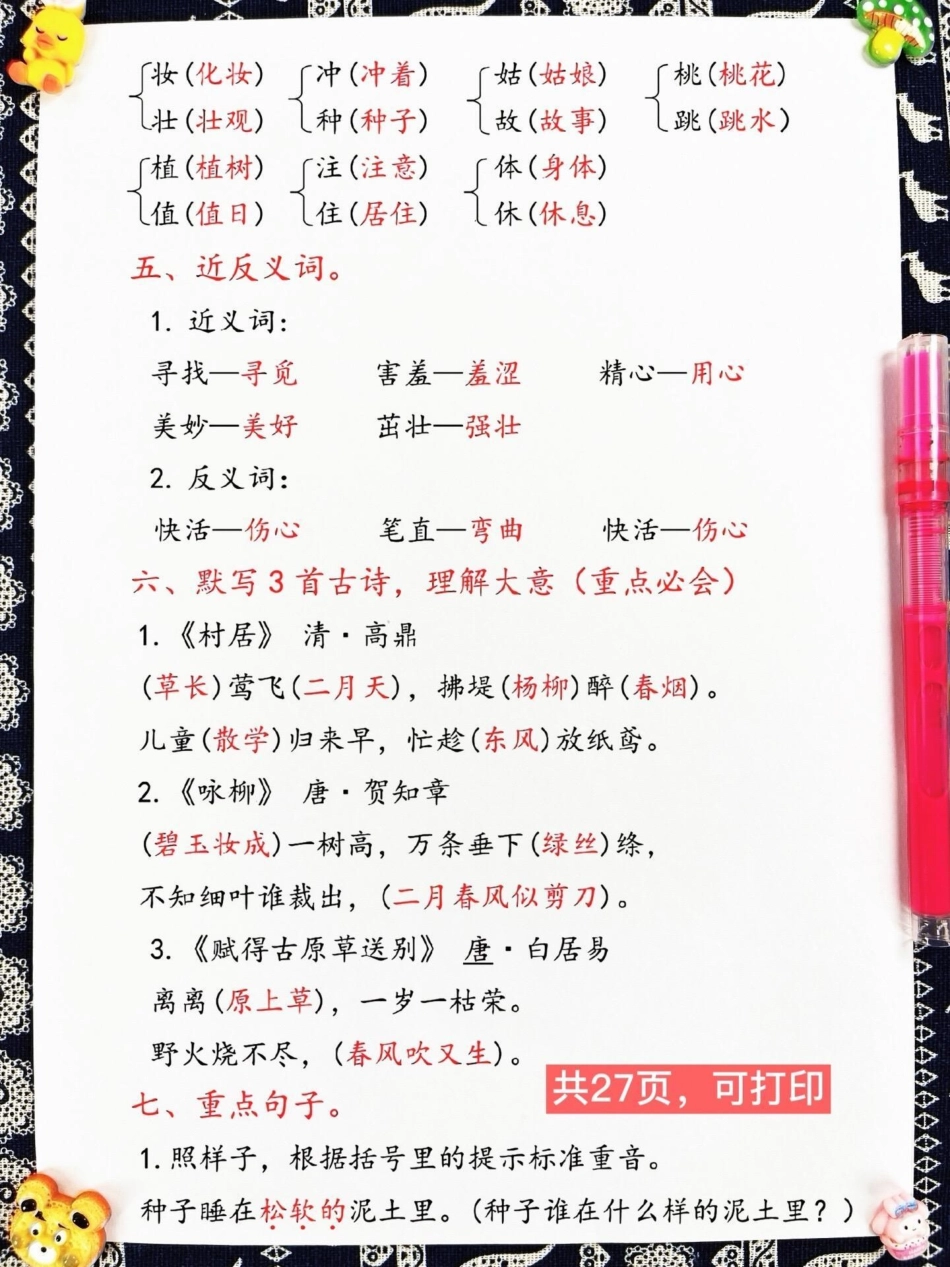 妆(化妆) 冲(冲着) 姑(姑娘) 桃(桃花)
壮(壮观) 种(种子) 故(故事) 跳(跳水)
植(植树) 注(注意) 体(身体)
值(值日) 住(居住) 休(休息)
五、近反义词。
1. 近义词:
寻找—寻觅 害羞—羞涩 精心—用心
美妙—美好 茁壮—强壮
2. 反义词:
快活—伤心 笔直—弯曲 快活—伤心
六、默写3首古诗，理解大意（重点必会）
1.《村居》 清·高鼎
(草长)莺飞(二月天)，拂堤(杨柳)醉(春烟)。
儿童(散学)归来早，忙趁(东风)放纸鸢。
2.《咏柳》 唐·贺知章
(碧玉妆成)一树高，万条垂下(绿丝)绦，
不知细叶谁裁出，(二月春风似剪刀)。
3.《赋得古原草送别》 唐·白居易
离离(原上草)，一岁一枯荣。
野火烧不尽，(春风吹又生)。
共27页，可打印
七、重点句子。
1.照样子，根据括号里的提示标准重音。
种子睡在松软的泥土里。(种子谁在什么样的泥土里？)